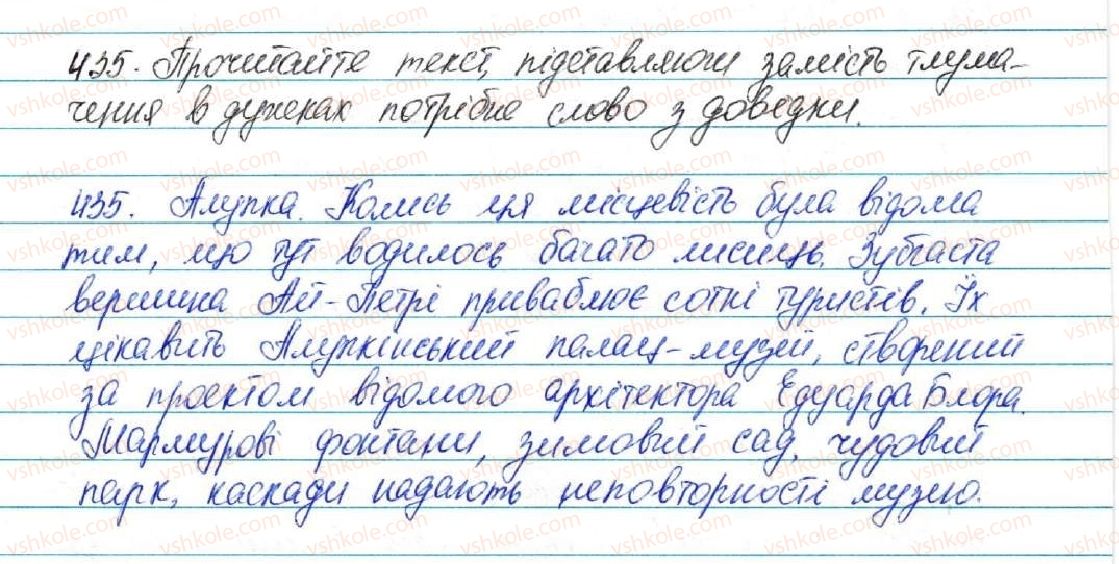 435. Прочитайте текст, підставляючи замість тлума-
чення в дужках потрібне слово з довідки.
435. Алупка. Колись ця місцевість була відома
тим, що тут водилось багато лисиць. Зубчаста
вершина Ай-Петрі приваблює сотні туристів. Їх
цікавить Алупкінський палац-музей, створений
за проектом відомого архітектора Едуарда Блора.
Мармурові фонтани, зимовий сад, чудовий
парк, каскади надають неповторності музею.